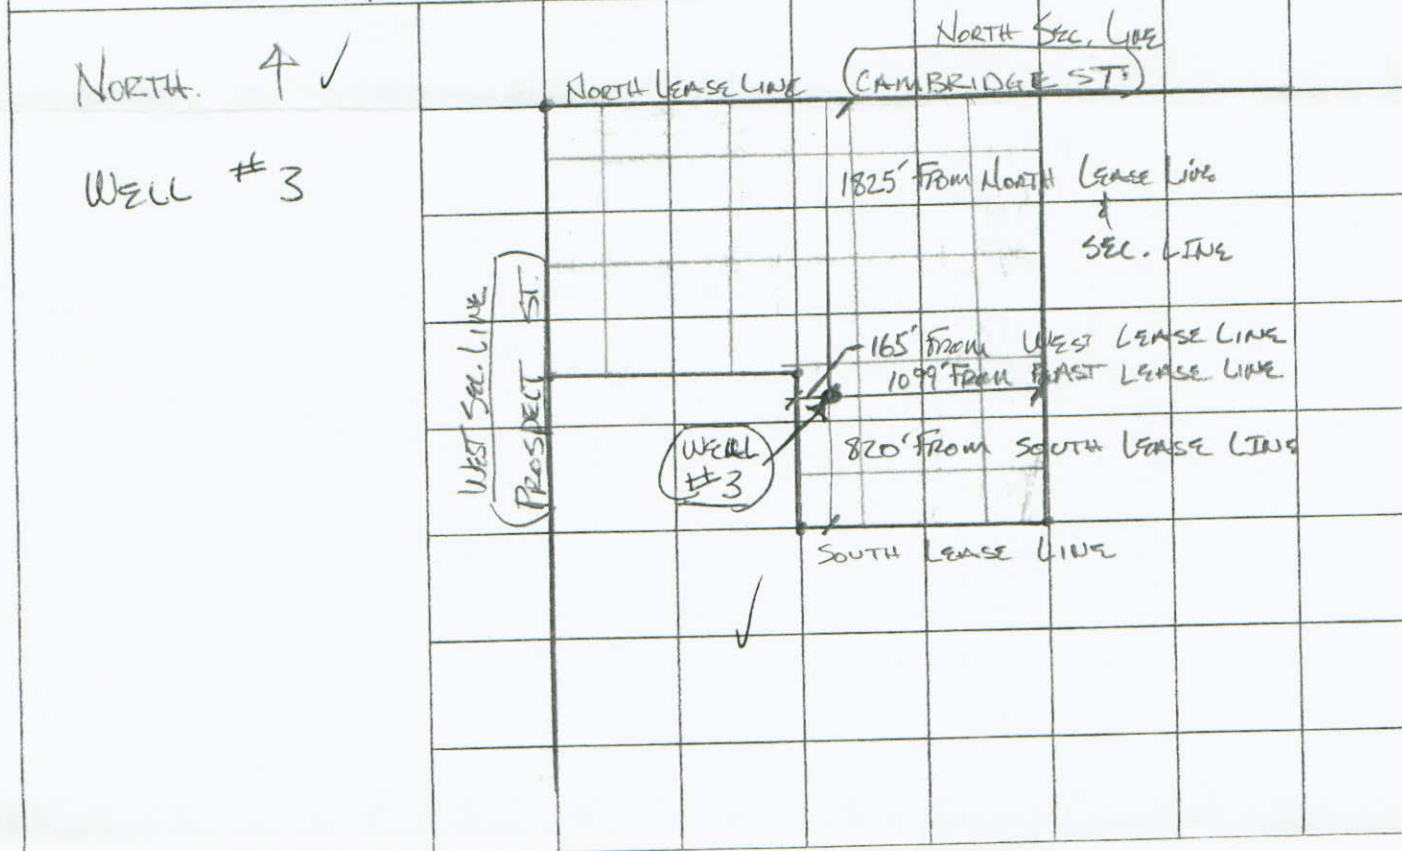 NORTH.
WELL #3
NORTH SEC. LINE
NORTH LEASE LINE
CAMBRIDGE ST.
1825' FROM NORTH LEASE LINE
&
SEC. LINE
WEST SEC. LINE
PROSPECT ST.
165' FROM WEST LEASE LINE
1099' FROM EAST LEASE LINE
WELL
#3
820' FROM SOUTH LEASE LINE
SOUTH LEASE LINE